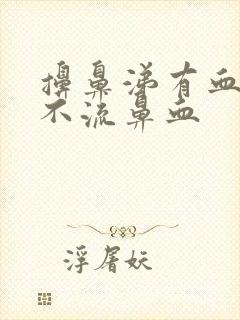 擤鼻涕有血
不流鼻血
浮屠妖